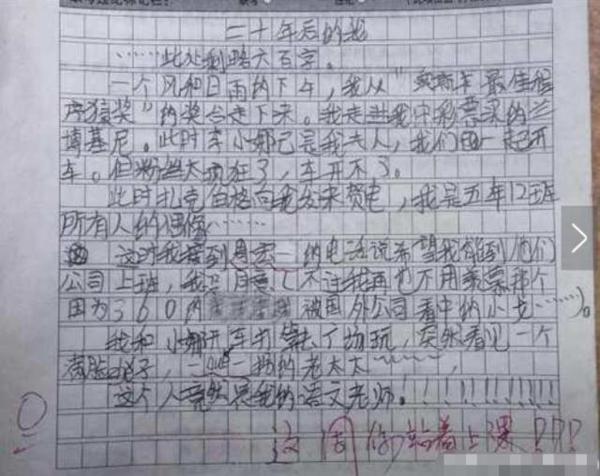 二十年后的我
……此处剩略六百字。
一个风和日雨的下午，我从“奥斯卡最佳程
序猿奖”的奖台走下来。我走进我中彩票买的兰
博基尼。此时李小娜已是我夫人，我们一起开
车。但粉丝太疯狂了，车开不了。
此时扎克伯格向我发来贺电，我是五年12班
所有人的偶像……
这时我接到周宏一的电话说希望我能到他们
公司上班，我
因为360的 被国外公司看中的小
我和小娜开车 广场玩，突然看见一个
子，一 的老太太
这个人竟然是我的语文老师！！！！！！！！！！
这周你站着上课！！！